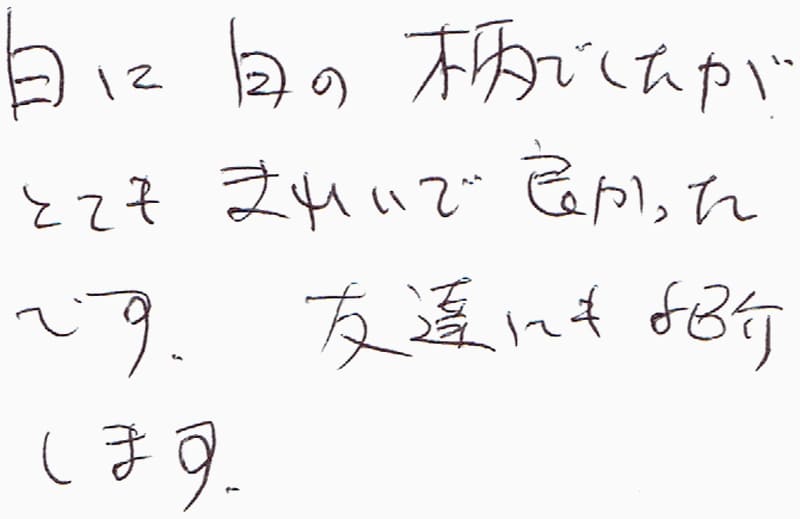 白に白の柄でしたが
とても きれいで 良かった
です. 友達にも 紹介
します.